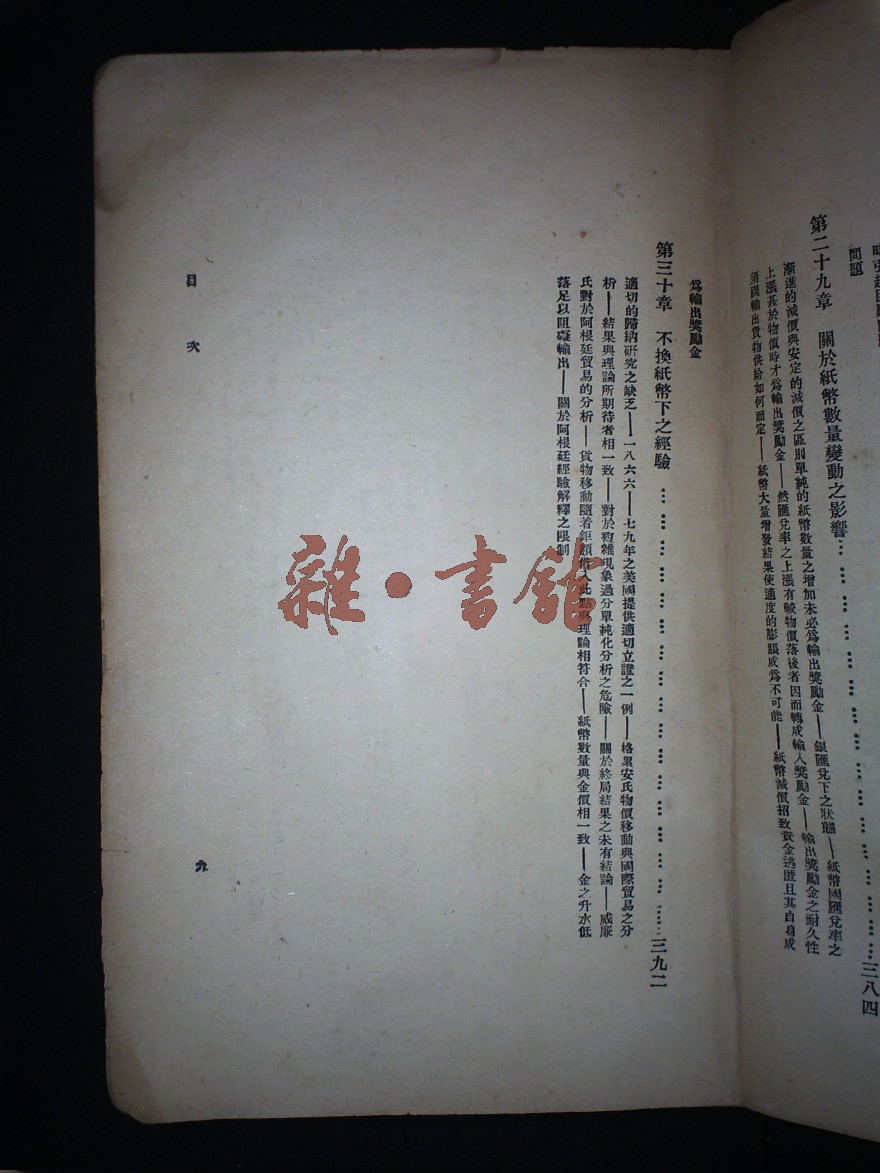 問題
第二十九章　關於紙幣數量變動之影響……………………………三八四
漸進的減價與安定的減價之區別單純的紙幣數量之增加未必爲輸出獎勵金——銀匯兌下之狀態——紙幣國匯兌率之
上漲甚於物價時才爲輸出獎勵金——然匯兌率之上漲有較物價落後者因而轉成輸入獎勵金——輸出獎勵金之耐久性
須視輸出貨物供給如何而定——紙幣大量增發結果使適度的膨脹成爲不可能——紙幣減價招致資金逃匿且其自身成
爲輸出獎勵金
第三十章　不換紙幣下之經驗……………………………三九二
適切的歸納研究之缺乏——一八六六——七九年之美國提供適切立證之一例——格累安氏物價移動與國際貿易之分
析——結果與理論所期待者相一致——對於複雜現象過分單純化分析之危險——關於終局結果之未有結論——威廉
氏對於阿根廷貿易的分析——貨物移動隨着鉅額借入此點與理論相符合——紙幣數量與金價相一致——金之升水低
落足以阻礙輸出——關於阿根廷經驗解釋之限制
目次
九
雜·書館